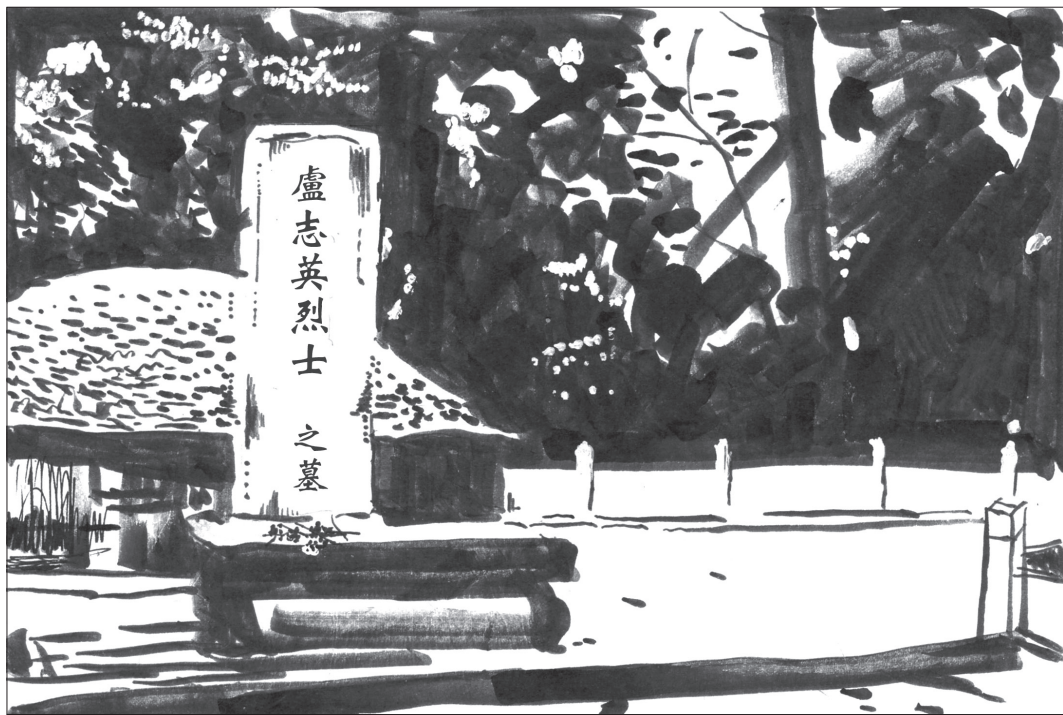 盧志英烈士 之墓